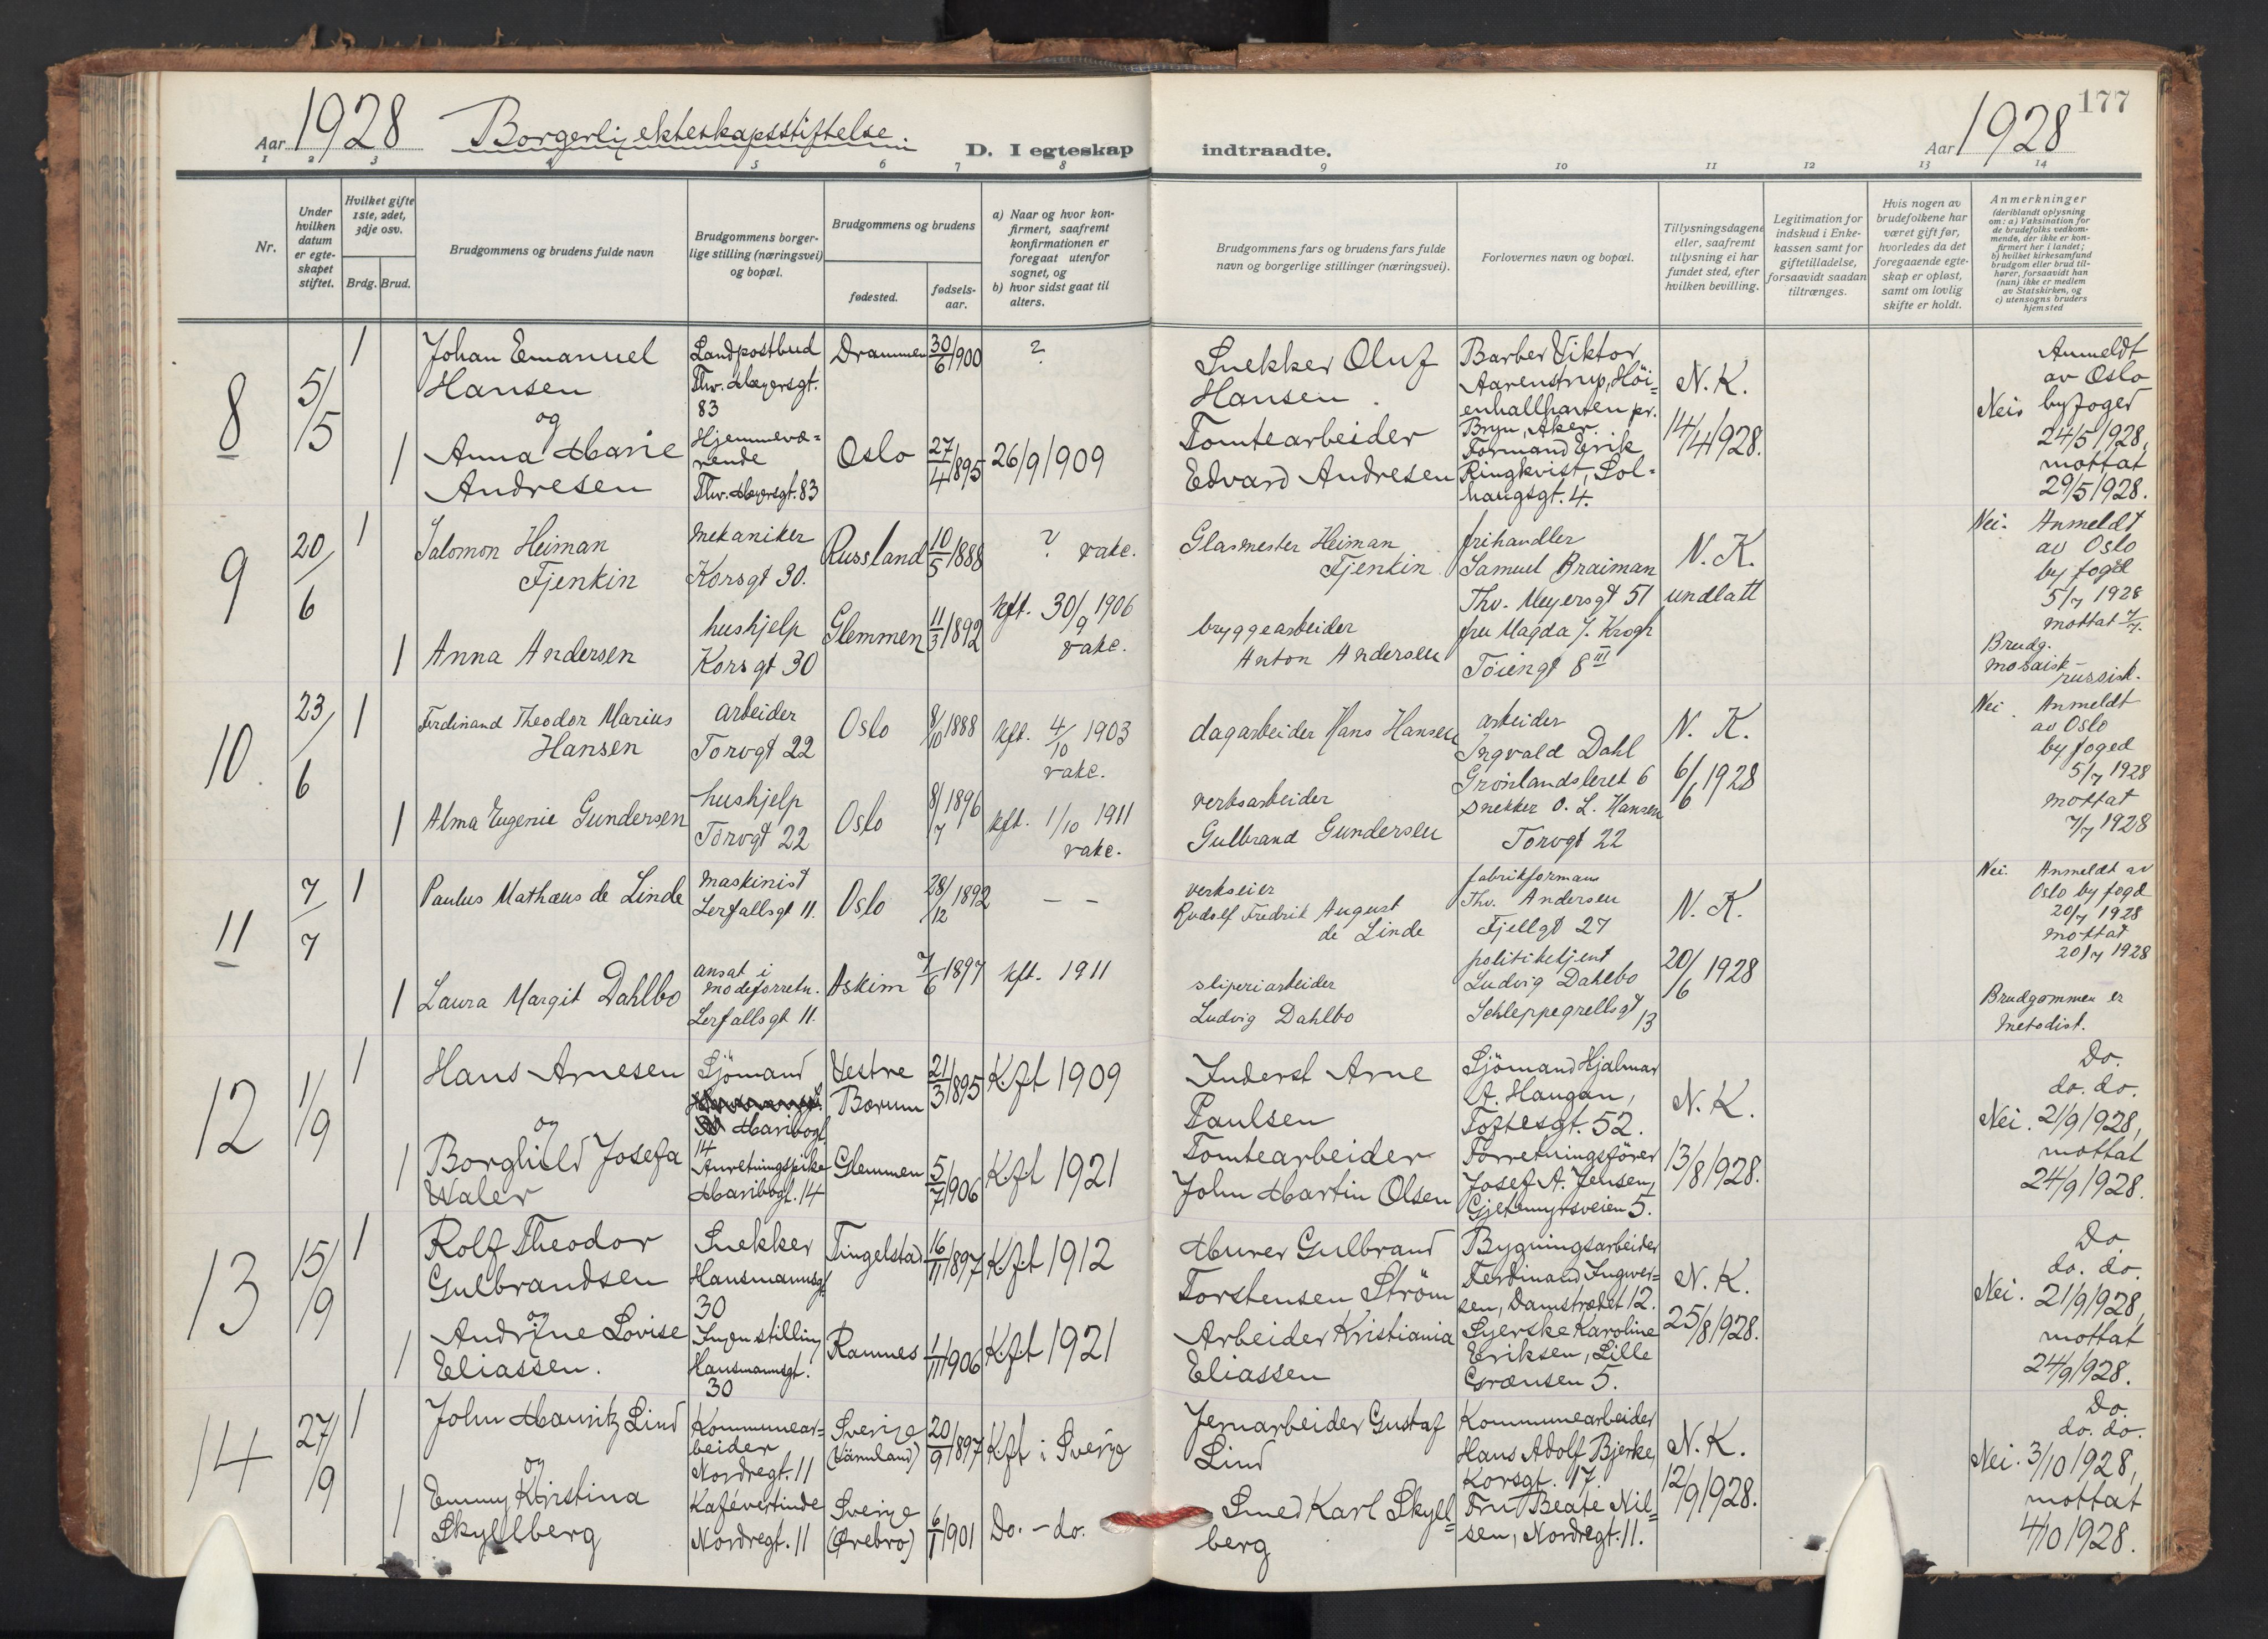 177
Aar 1928 Borgerlig ekteskapsstiftelse. D. I egteskap indtraadte. Aar 1928
1 2 3 4 5 6 7 8 9 10 11 12 13 14
Nr.
Under hvilken datum er egte-skapet stiftet.
Hvilket gifte 1ste, 2det, 3dje osv.
Brdg. Brud.
Brudgommens og brudens fulde navn
Brudgommens borger-
lige stilling (næringsvei)
og bopæl.
Brudgommens og brudens
fødested.
fødsels-
aar.
a) Naar og hvor kon-
firmert, saafremt
konfirmationen er
foregaat utenfor
sognet, og
b) hvor sidst gaat til
alters.
Brudgommens fars og brudens fars fulde
navn og borgerlige stillinger (næringsvei).
Forlovernes navn og bopæl.
Tillysningsdagene
eller, saafremt
tillysning ei har
fundet sted, efter
hvilken bevilling.
Legitimation for
indskud i Enke-
kassen samt for
giftetilladelse,
forsaavidt saadan
tiltrænges.
Hvis nogen av
brudefolkene har
været gift før,
hvorledes da det
foregaaende egte-
skap er opløst,
samt om lovlig
skifte er holdt.
Anmerkninger
(deriblandt oplysning
om: a) Vaksination for
de brudefolks vedkom-
mende, der ikke er kon-
firmert her i landet;
b) hvilket kirkesamfund
brudgom eller brud til-
hører, forsaavidt han
(hun) ikke er medlem
av Statskirken, og
c) utensogns bruders
hjemsted
8
5/5
1
Johan Emanuel
Hansen
og
1
Anna Marie
Andresen
Landpostbud
Thv. Meyersgt.
83
Hjemmevæ=
rende
Thv. Meyersgt. 83
Drammen
30/6 1900
?
Oslo
27/4 1895
26/9 1909
Snekker Oluf
Hansen.
Tomtearbeider
Edvard Andresen
Barber Viktor
Aarenstrup, Höi=
enhallhaven pr.
Bryn, Aker.
Formand Erik
Ringkvist, Sol=
haugsgt. 4.
N. K.
14/4 1928.
Nei
Anmeldt
av Oslo
byfoged
24/5 1928,
mottat
29/5 1928.
9
20/6
1
Salomon Heiman
Fjenkin
1
Anna Andersen
mekaniker
Korsgt 30.
hushjelp
Korsgt 30
Russland
10/5 1888
? vakc.
Glemmen
11/3 1892
kft. 30/9 1906
vakc.
Glasmester Heiman
Fjenkin
bryggearbeider
Anton Andersen
frihandler
Samuel Braiman
Thv. Meyersgt 51
fru Magda J. Krogh
Töiengt 8 III
N. K.
undlatt
Nei. Anmeldt
av Oslo
byfogd
5/7 1928
mottat 7/7.
Brudg.
mosaisk -
russisk.
10.
23/6
1
Ferdinand Theodor Marius
Hansen
1
Alma Eugenie Gundersen
arbeider
Torvgt 22
hushjelp
Torvgt 22
Oslo
8/10 1888
kft. 4/10 1903
vakc.
Oslo
8/7 1896
kft. 1/10 1911
vakc.
dagarbeider Hans Hansen
verksarbeider
Gulbrand Gundersen
arbeider
Ingvald Dahl
Grønlandsleret 6
snekker O. L. Hansen
Torvgt 22
N. K.
6/6 1928
Nei. Anmeldt
av Oslo
byfoged
5/7 1928
mottat
7/7 1928
11
7/7
1
Paulus Mathæus de Linde
1
Laura Margit Dahlbo
maskinist
Lerfallsgt 11.
ansat i
modeforretn.
Lerfallsgt 11.
Oslo
28/12 1892
– –
Askim
7/6 1897
kft. 1911
verkseier
Rudolf Fredrik August
de Linde
sliperiarbeider
Ludvig Dahlbo
fabrikformann
Thv. Andersen
Fjellgt 27
politibetjent
Ludvig Dahlbo
Schleppegrellsgt 13
N. K.
20/6 1928
Nei. Anmeldt av
Oslo byfogd
20/7 1928
mottat
20/7 1928
Brudgommen er
metodist.
12
1/9
1
Hans Arnesen
og
1
Borghild Josefa
Waler
Sjömand
Maribogt.
14
Anretningspike
Maribogt. 14
Vestre
Bærum
21/3 1895
K.ft 1909
Glemmen
5/7 1906
K.ft 1921
Inderst Arne
Paulsen
Tomtearbeider
John Martin Olsen
Sjömand Hjalmar
A. Haugan,
Toftesgt. 52.
Forretningsförer
Josef A. Jensen,
Gjetemyrsveien 5.
N. K.
13/8 1928.
Do.
do. do.
Nei. 21/9 1928,
mottat
24/9 1928.
13
15/9
1
Rolf Theodor
Gulbrandsen
og
1
Andrine Lovise
Eliassen.
Snekker
Hausmannsgt
30
Ingen stilling
Hausmannsgt.
30
Tingelstad
16/11 1897
K.ft 1912
Ramnes
1/11 1906
K.ft 1921
Murer Gulbrand
Torstensen Ström
Arbeider Kristiania
Eliassen
Bygningsarbeider
Ferdinand Ingwer=
sen, Damstredet 12.
Syerske Karoline
Eriksen, Lille
Grænsen 5.
N. K.
25/8 1928.
Do
do. do.
Nei. 21/9 1928,
mottat
24/9 1928.
14
27/9
1
John Mauritz Lind
og
1
Emmy Kristina
Skyllberg
Kommunear=
beider
Nordregt. 11
Kafévertinde
Nordregt. 11
Sverige
(Värmland)
20/9 1897
K.ft i Sverige
Sverige
(Ørebro)
6/1 1901
Do. – do.
Jernarbeider Gustaf
Lind
Smed Karl Skyll=
berg
Kommunearbeider
Hans Adolf Bjerke,
Korsgt. 17.
Fru Beate Nil=
sen, Nordregt. 11.
N. K.
12/9 1928.
Do.
do. do.
Nei. 3/10 1928,
mottat
4/10 1928.